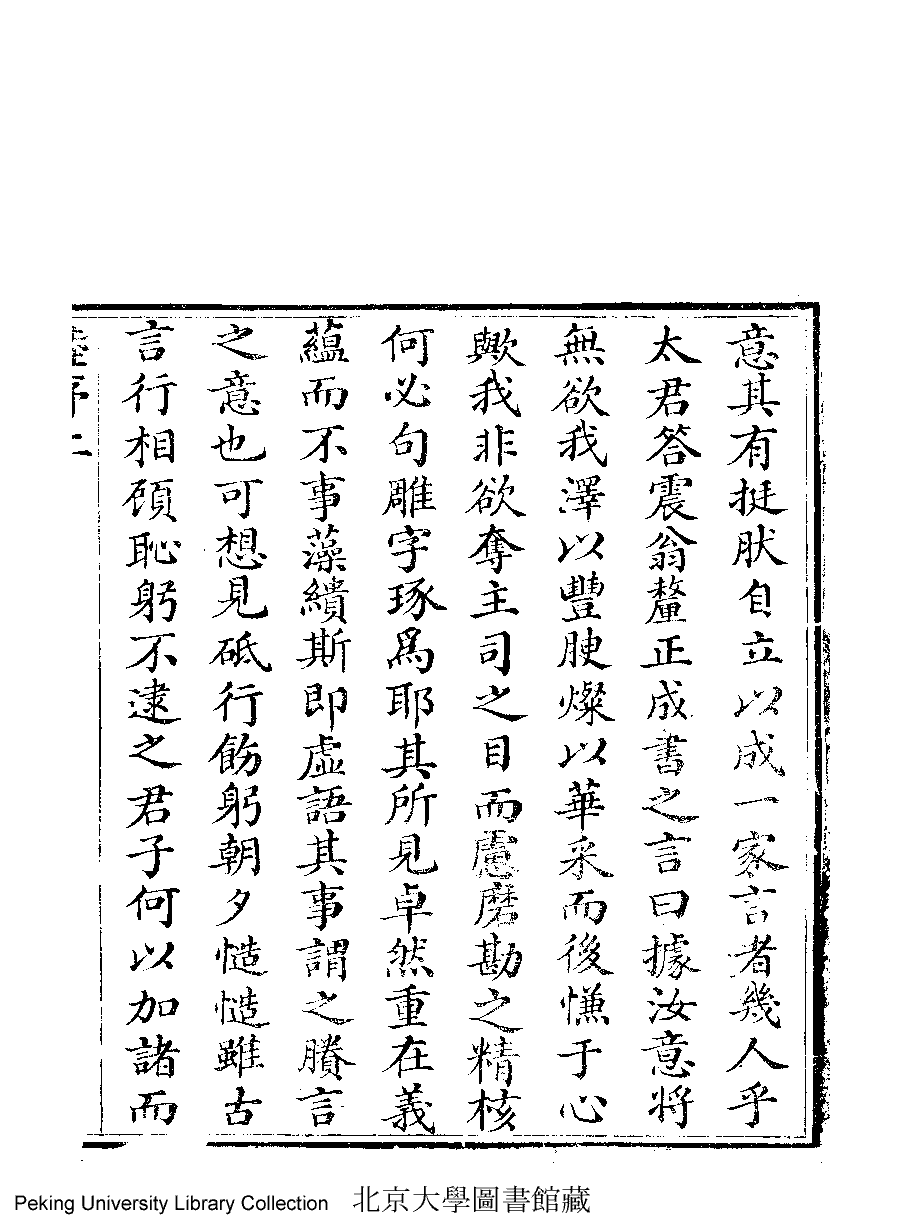 意其有挺肰自立以成一家言者幾人乎
太君答震翁釐正成書之言曰據汝意將
無欲我澤以豐腴燦以華采而後慊于心
歟我非欲奪主司之目而慮磨勘之精核
何必句雕字琢爲耶其所見卓然重在義
蘊而不事藻繢斯即虛語其事謂之賸言
之意也可想見砥行飭躬朝夕慥慥雖古
言行相顧恥躬不逮之君子何以加諸而
序二
Peking University Library Collection 北京大學圖書館藏